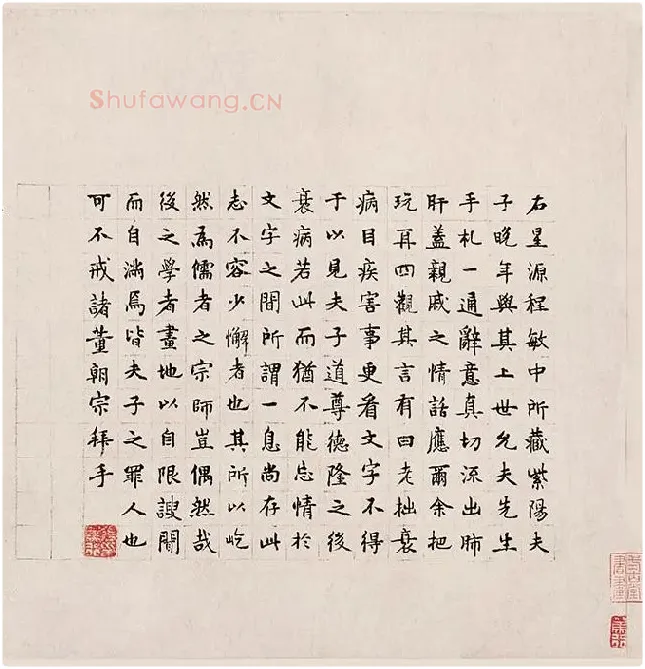 Shufawang.CN
右星源程敏中所藏紫陽夫
子晚年與其上世允夫先生
手札一通辭意真切流出肺
肝蓋親戚之情話應爾余把
玩再四觀其言有曰老拙衰
病目疾害事更看文字不得
于以見夫子道尊德隆之後
衰病若此而猶不能忘情於
文字之間所謂一息尚存此
志不容少懈者也其所以屹
然為儒者之宗師豈偶然哉
後之學者畫地以自限謏聞
而自滿焉皆夫子之罪人也
可不戒諸董朝宗拜手